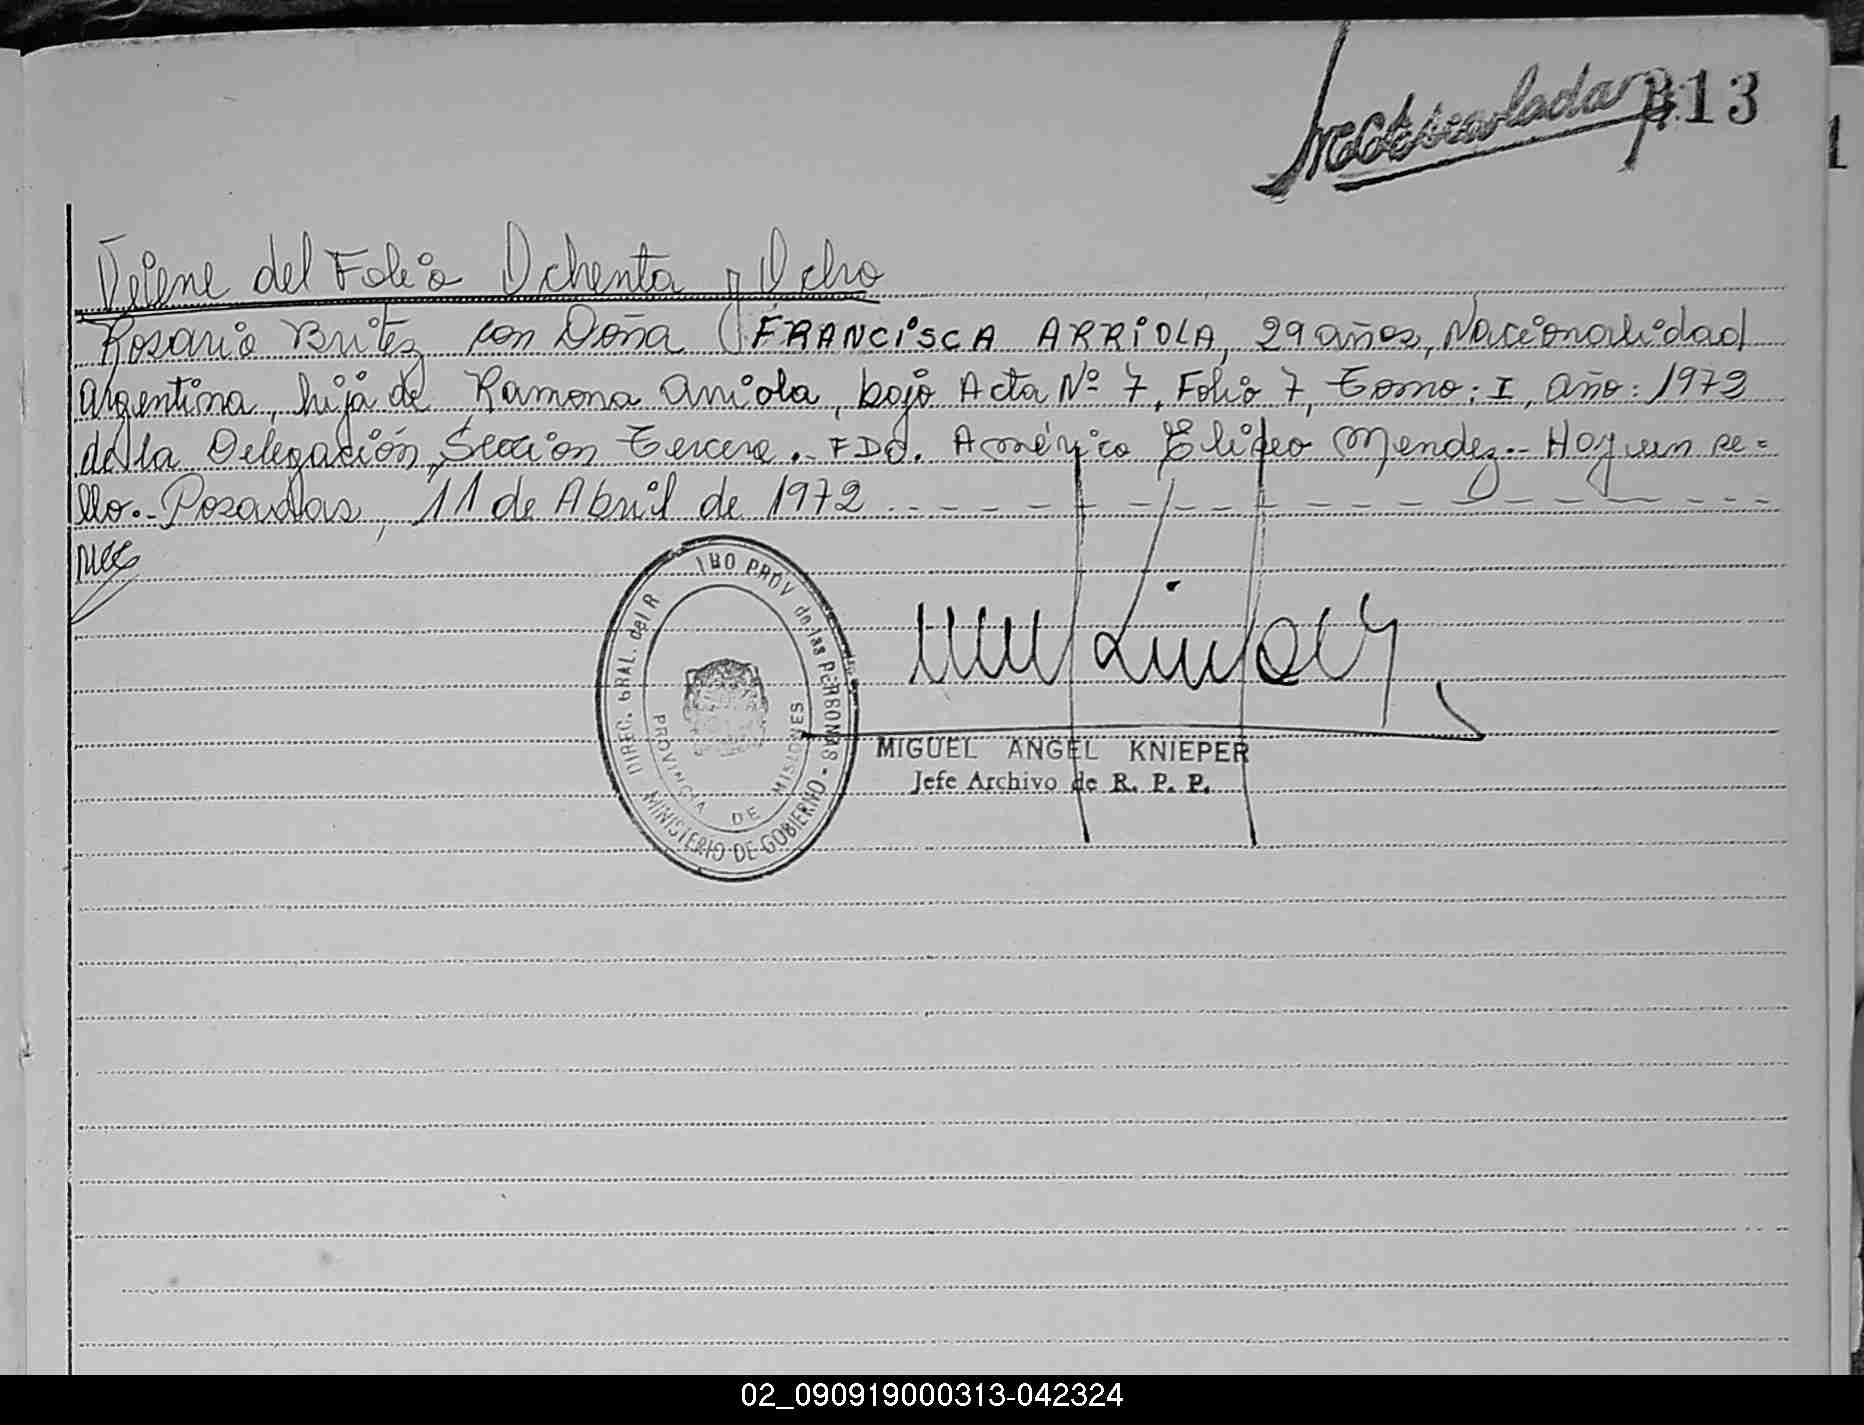 313
Veiene del Folio Ochenta y Ocho
Rosario Britez con Doña FRANCISCA ARRIOLA, 29 años, Nacionalidad
Argentina, hija de Ramona Arriola, bajo Acta Nº 7, Folio 7, Tomo: I, año: 1972
de la Delegación, Sección Tercera.. FDO. Américo Eliseo Mendez.- Hay un se=
llo.- Posadas, 11 de Abril de 1972
DIREC. GRAL. del R PROV de las PERSONAS - MINISTERIO DE GOBIERNO -
PROVINCIA DE MISIONES
MIGUEL ANGEL KNIEPER
Jefe Archivo de R. P. P.
1
02_090919000313-042324